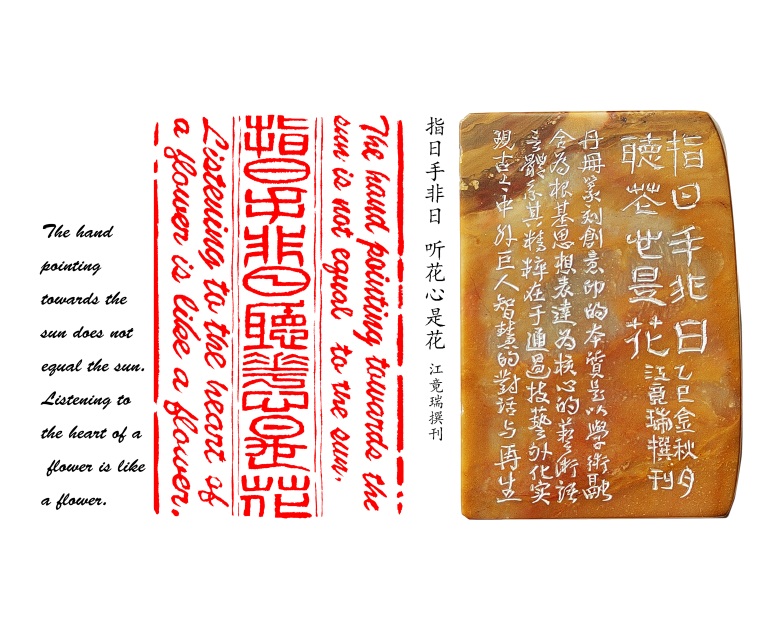 The hand
pointing
towards the
sun does not
equal the sun.
Listening to
the heart of a
flower is like
a flower.
The hand pointing towards the
sun is not equal to the sun.
指日手非日聽花心是花
Listening to the heart of
a flower is like a flower.
指日手非日 听花心是花 江竟瑞撰刊
指日手非日
聽花心是花
乙巳金秋月
江竟瑞撰刊
丹冊篆刻創意印的本質是以學術融
合為根基思想表達為核心的藝術語
言體系其精粹在于通過技藝外化实
現古今中外巨人智慧的對話与再生